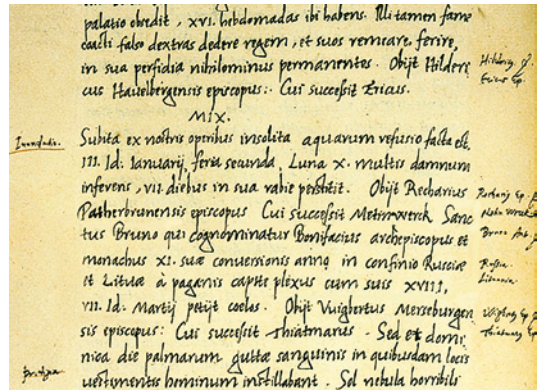 palatio obedit, xvi. hebdomadas ibi habens. Illi tamen fame
coacti falso dextras dedere regem, et suos remeare, ferire,
in sua perfidia nihilominus permanentes. Obijt Hilderi
cus Hauelbergensis episcopus: Cui successit Ericus.
Ericus Ep.
MIX.
Inundatio.
Subita ex nostris operibus insolita aquarum refusio facta est.
III. Id: Ianuarij, feria secunda, Luna X. multis damnum
inferens, VII. diebus in sua rabie perstitit. Obijt Recharius
Patherbrunensis episcopus Cui successit Meinwerck Sanc
tus Bruno qui cognominatur Bonifacius archepiscopus et
monachus XI. suæ conversionis anno in confinio Rusciæ
Russia.
et Lituæ à paganis capite plexus cum suis XVIII,
Lituania.
VII. Id: Martij petijt coelos. Obijt Vuigbertus Merseburgen
sis episcopus: Cui successit Thiatmarus. Sed et domi
nica die palmarum guttæ sanguinis in quibusdam locis
vestimentis hominum instillabant. Sol nebula horribili